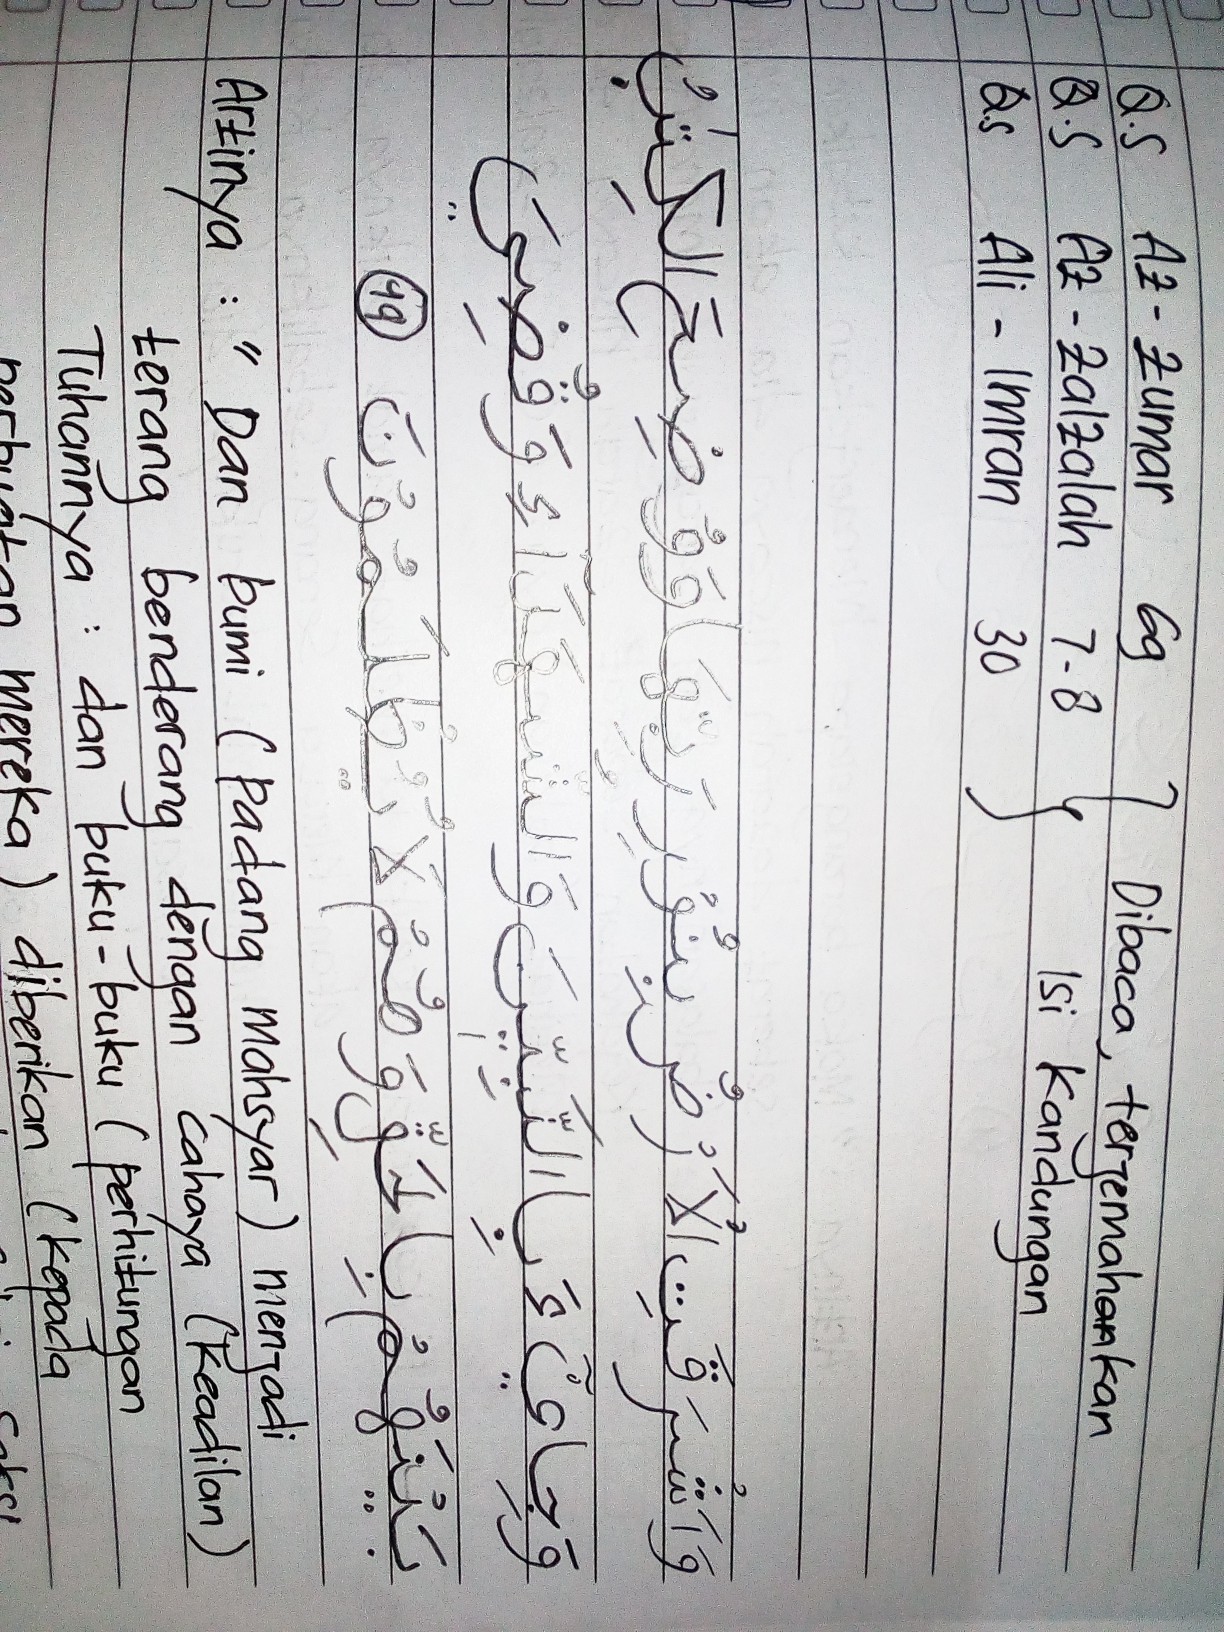 Q.S Az-Zumar 69 } Dibaca, terjemahankan
Q.S Az-Zalzalah 7-8
Isi Kandungan
Qs Ali-Imran 30
وَاَشْرَقَتِ الْاَرْضُ بِنُوْرِ رَبِّهَا وَوُضِعَ الْكِتٰبُ
وَجِايْۤءَ بِالنَّبِيّٖنَ وَالشُّهَدَاۤءِ وَقُضِيَ
بَيْنَهُمْ بِالْحَقِّ وَهُمْ لَا يُظْلَمُوْنَ (49)
Artinya : " Dan bumi (Padang mahsyar) menjadi
terang benderang dengan cahaya (Keadilan)
Tuhannya : dan buku-buku (perhitungan
perbuatan mereka) diberikan (kepada
saksi